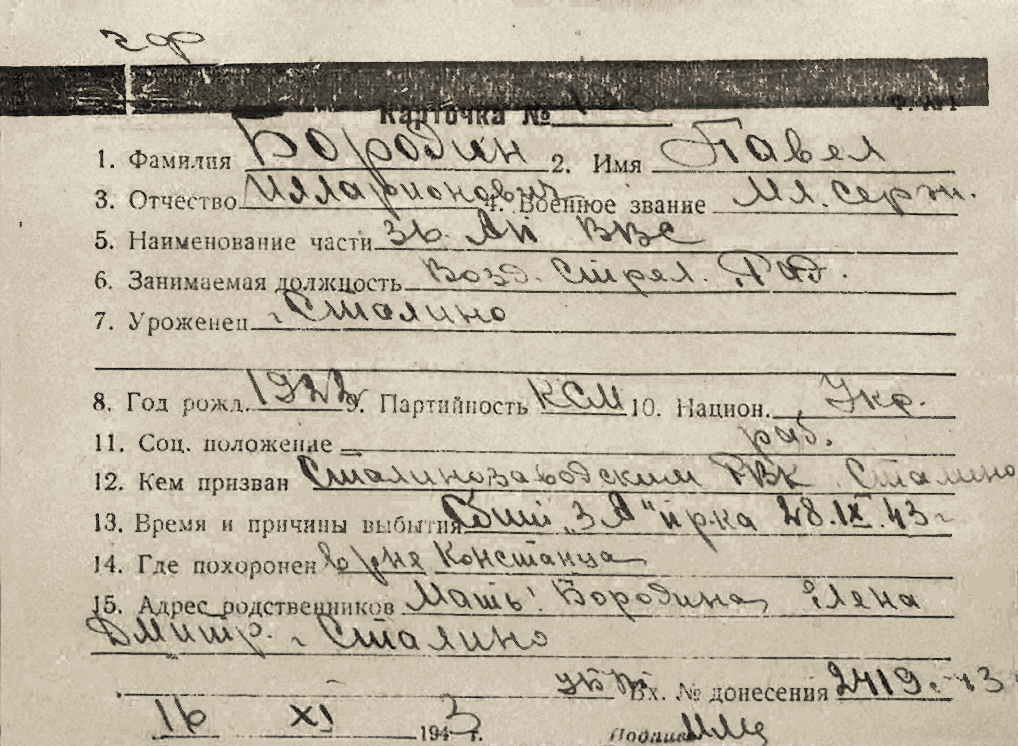 Карточка №
1. Фамилия Бородин 2. Имя Павел
3. Отчество Илларионович 4. Военное звание Мл. серж.
5. Наименование части 36 АП ВВС
6. Занимаемая должность Возд. Стрел. Рад.
7. Уроженец г Сталино
8. Год рожд. 1922 9. Партийность КСМ 10. Национ. Укр.
11. Соц. положение раб.
12. Кем призван Сталинозаводским РВК Сталино
13. Время и причины выбытия Сбит "ЗА" пр-ка 28.IX.43 г
14. Где похоронен Констанца
15. Адрес родственников Мать: Бородина Елена
Дмитр. г Сталино
Вх. № донесения 2419
16 XI 1943 г.
Подпись